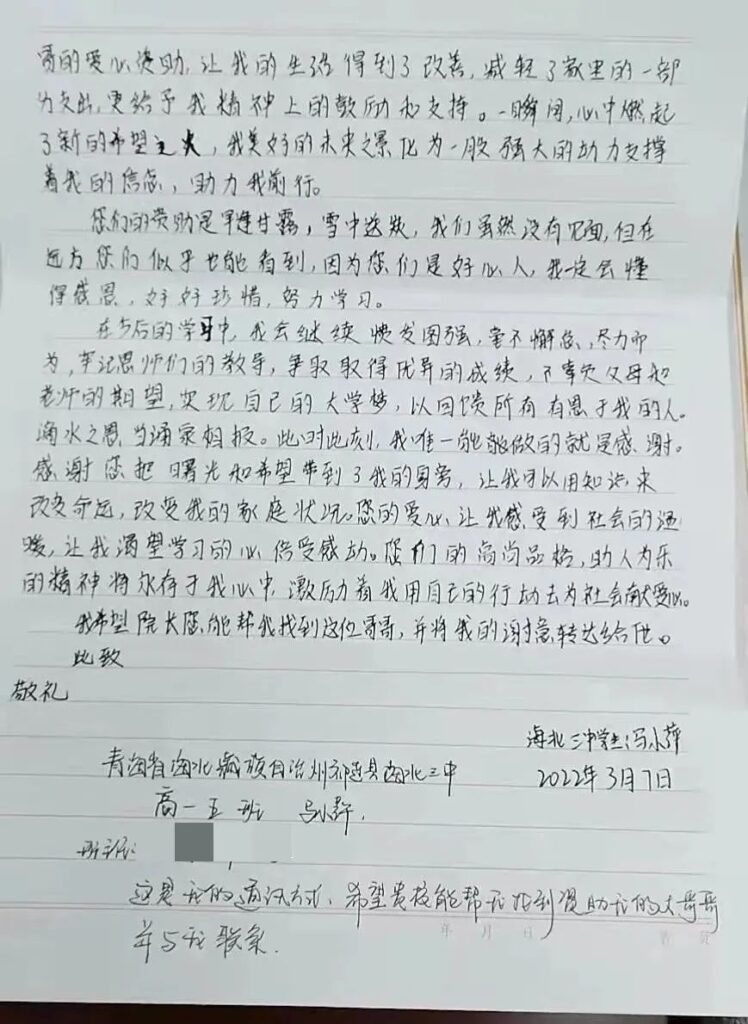 哥的爱心资助,让我的生活得到了改善,减轻了家里的一部
分支出,更给予我精神上的鼓励和支持。一瞬间,心中燃起
了新的希望之火,我美好的未来之景化为一股强大的动力支撑
着我的信念,助力我前行。
您们的资助是旱逢甘露,雪中送炭,我们虽然没有见面,但在
远方您们似乎也能看到,因为您们是好心人,我一定会懂
得感恩,好好珍惜,努力学习。
在今后的学习中,我会继续发图强,毫不懈怠,尽力而
为,牢记恩师们的教导,争取取得优异的成绩,不辜负父母和
老师的期望,实现自己的大学梦,以回馈所有有恩于我的人。
滴水之恩当涌泉相报。此时此刻,我唯一能能做的就是感谢。
感谢您把曙光和希望带到了我的身旁,让我可以用知识来
改变命运,改变我的家庭状况。您的爱心让我感受到社会的温
暖,让我渴望学习的心倍受感动。您们的高尚品格,助人为乐
的精神将永存于我心中,激励着我用自己的行动去为社会献爱心。
我希望院长您能帮我找到这位哥哥,并将我的谢意转达给他。
此致
敬礼
海北三中学生:马小萍
青海省海北藏族自治州祁连县海北三中
2022年3月7日
高一五班 马小
这是我的通讯方式,希望贵校能帮我找到资助我的大哥哥
并与我联系.
年 月 日
第 页